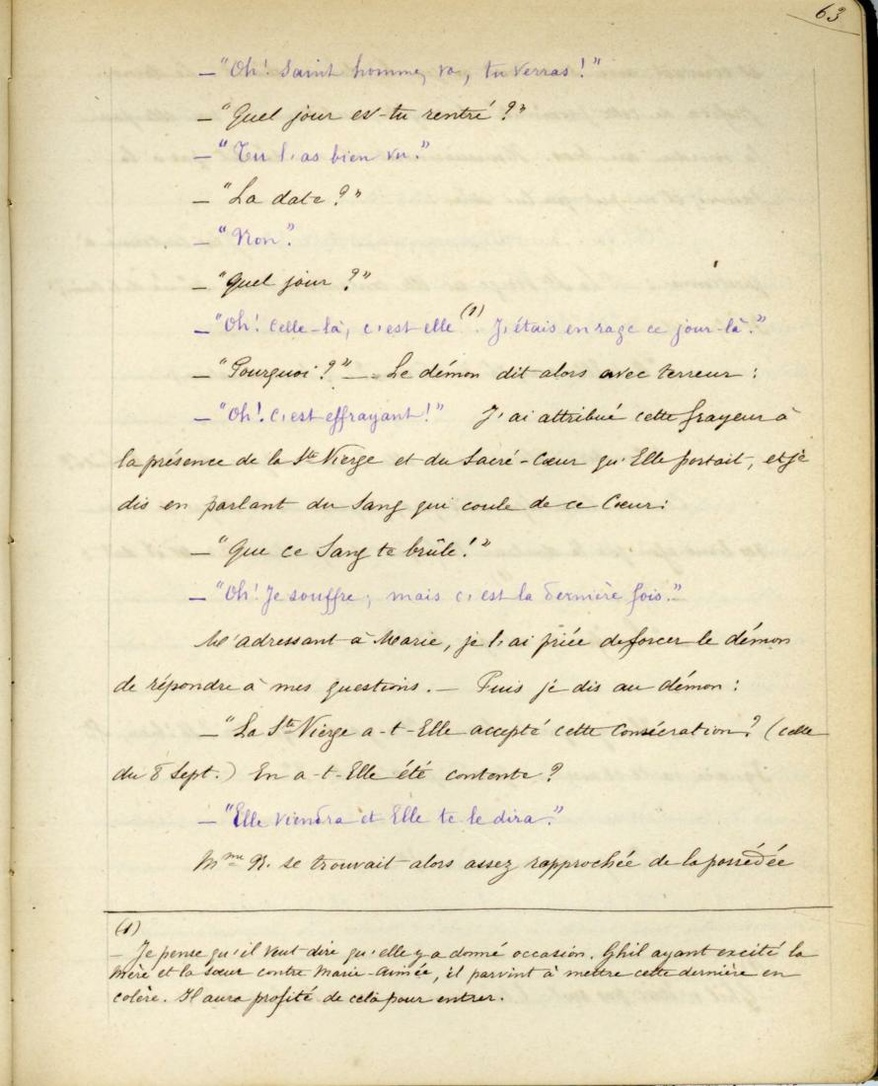 63
— "Oh! Saint homme, va, tu verras!"
— "Quel jour es-tu rentré ?"
— "Tu l'as bien vu."
— "La date ?"
— "Non".
— "Quel jour ?"
— "Oh! Celle-là, c'est elle (1). J'étais en rage ce jour-là."
— "Pourquoi ?" — Le démon dit alors avec terreur :
— "Oh! C'est effrayant!" J'ai attribué cette frayeur à
la présence de la Ste Vierge et du Sacré-Cœur qu'Elle portait, et je
dis en parlant du Sang qui coule de ce Cœur :
— "Que ce Sang te brûle!"
— "Oh! Je souffre, mais c'est la dernière fois."
M'adressant à Marie, je l'ai priée de forcer le démon
de répondre à mes questions. — Puis je dis au démon :
— "La Ste Vierge a-t-Elle accepté cette Consécration ? (celle
du 8 Sept.) En a-t-Elle été contente ?
— "Elle viendra et Elle te le dira."
Mme R. se trouvait alors assez rapprochée de la possédée
(1)
— Je pense qu'il veut dire qu'elle y a donné occasion. Ghil ayant excité la
mère et la sœur contre Marie-Aimée, il parvint à mettre cette dernière en
colère. Il aura profité de cela pour entrer.